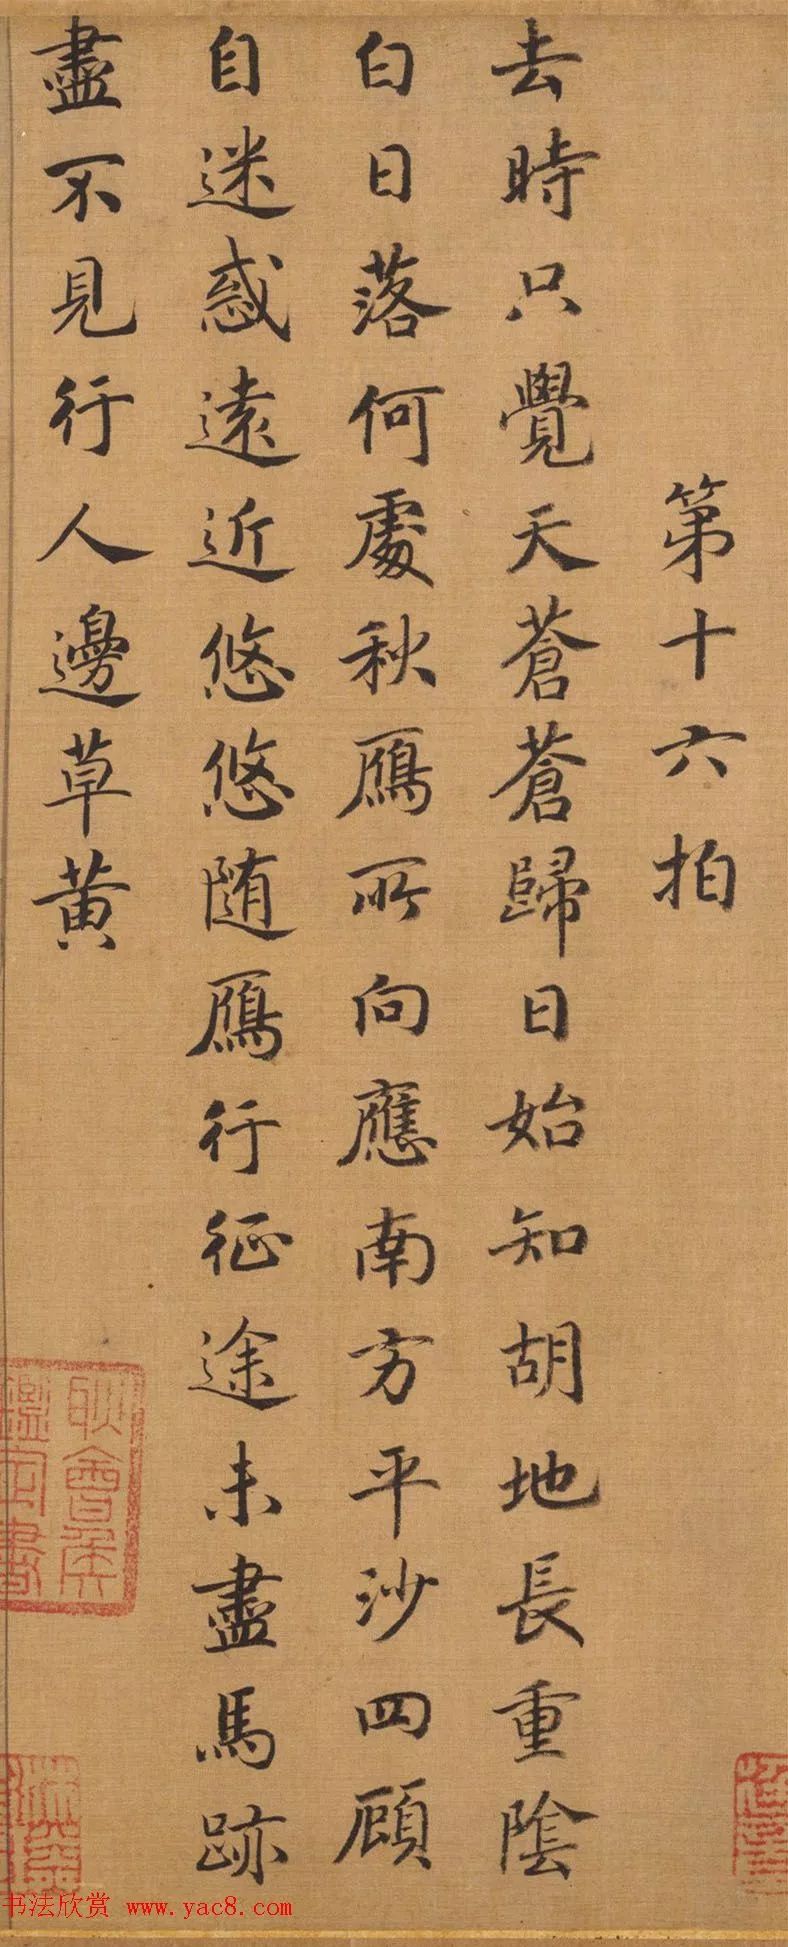 第十六拍
去時只覺天蒼蒼歸日始知胡地長重陰
白日落何處秋鴈所向應南方平沙四顧
自迷惑遠近悠悠随鴈行征途未盡馬跡
盡不見行人邊草黃
耿會侯
鑑定書
书法欣赏 www.yac8.com